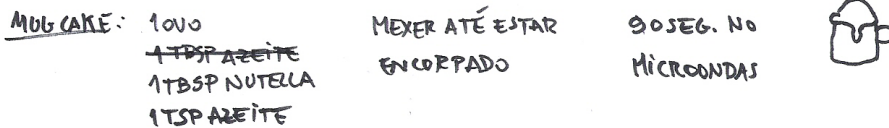 MUG CAKE: 1 OVO
1 TBSP AZEITE
1 TBSP NUTELLA
1 TSP AZEITE
MEXER ATÉ ESTAR
ENCORPADO
90 SEG. NO
MICROONDAS